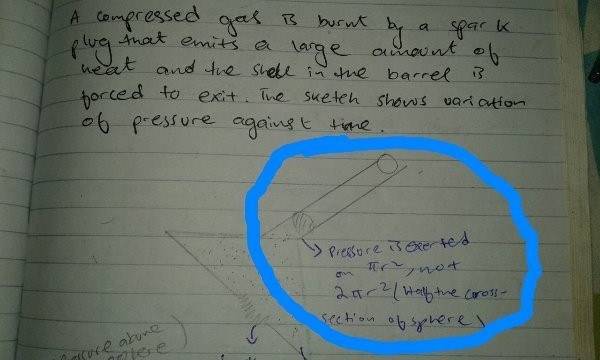 A compressed gas is burnt by a spark
plug that emits a large amount of
heat and the shell in the barrel is
forced to exit. The sketch shows variation
of pressure against time.
Pressure is exerted
on πr², not
2πr² (Half the cross-
section of sphere)
pressure above